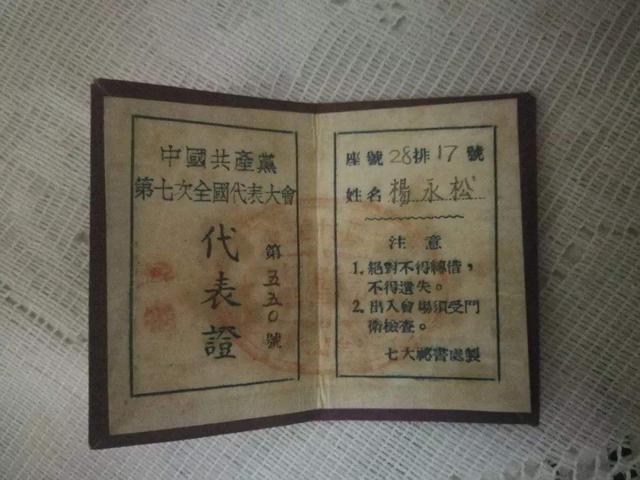 中國共產黨
第七次全國代表大會
代表證
第五五〇號
座號28排17號
姓名楊永松
注意
1. 絕對不得轉借，
不得遺失。
2. 出入會場須受門
衛檢查。
七大祕書處製